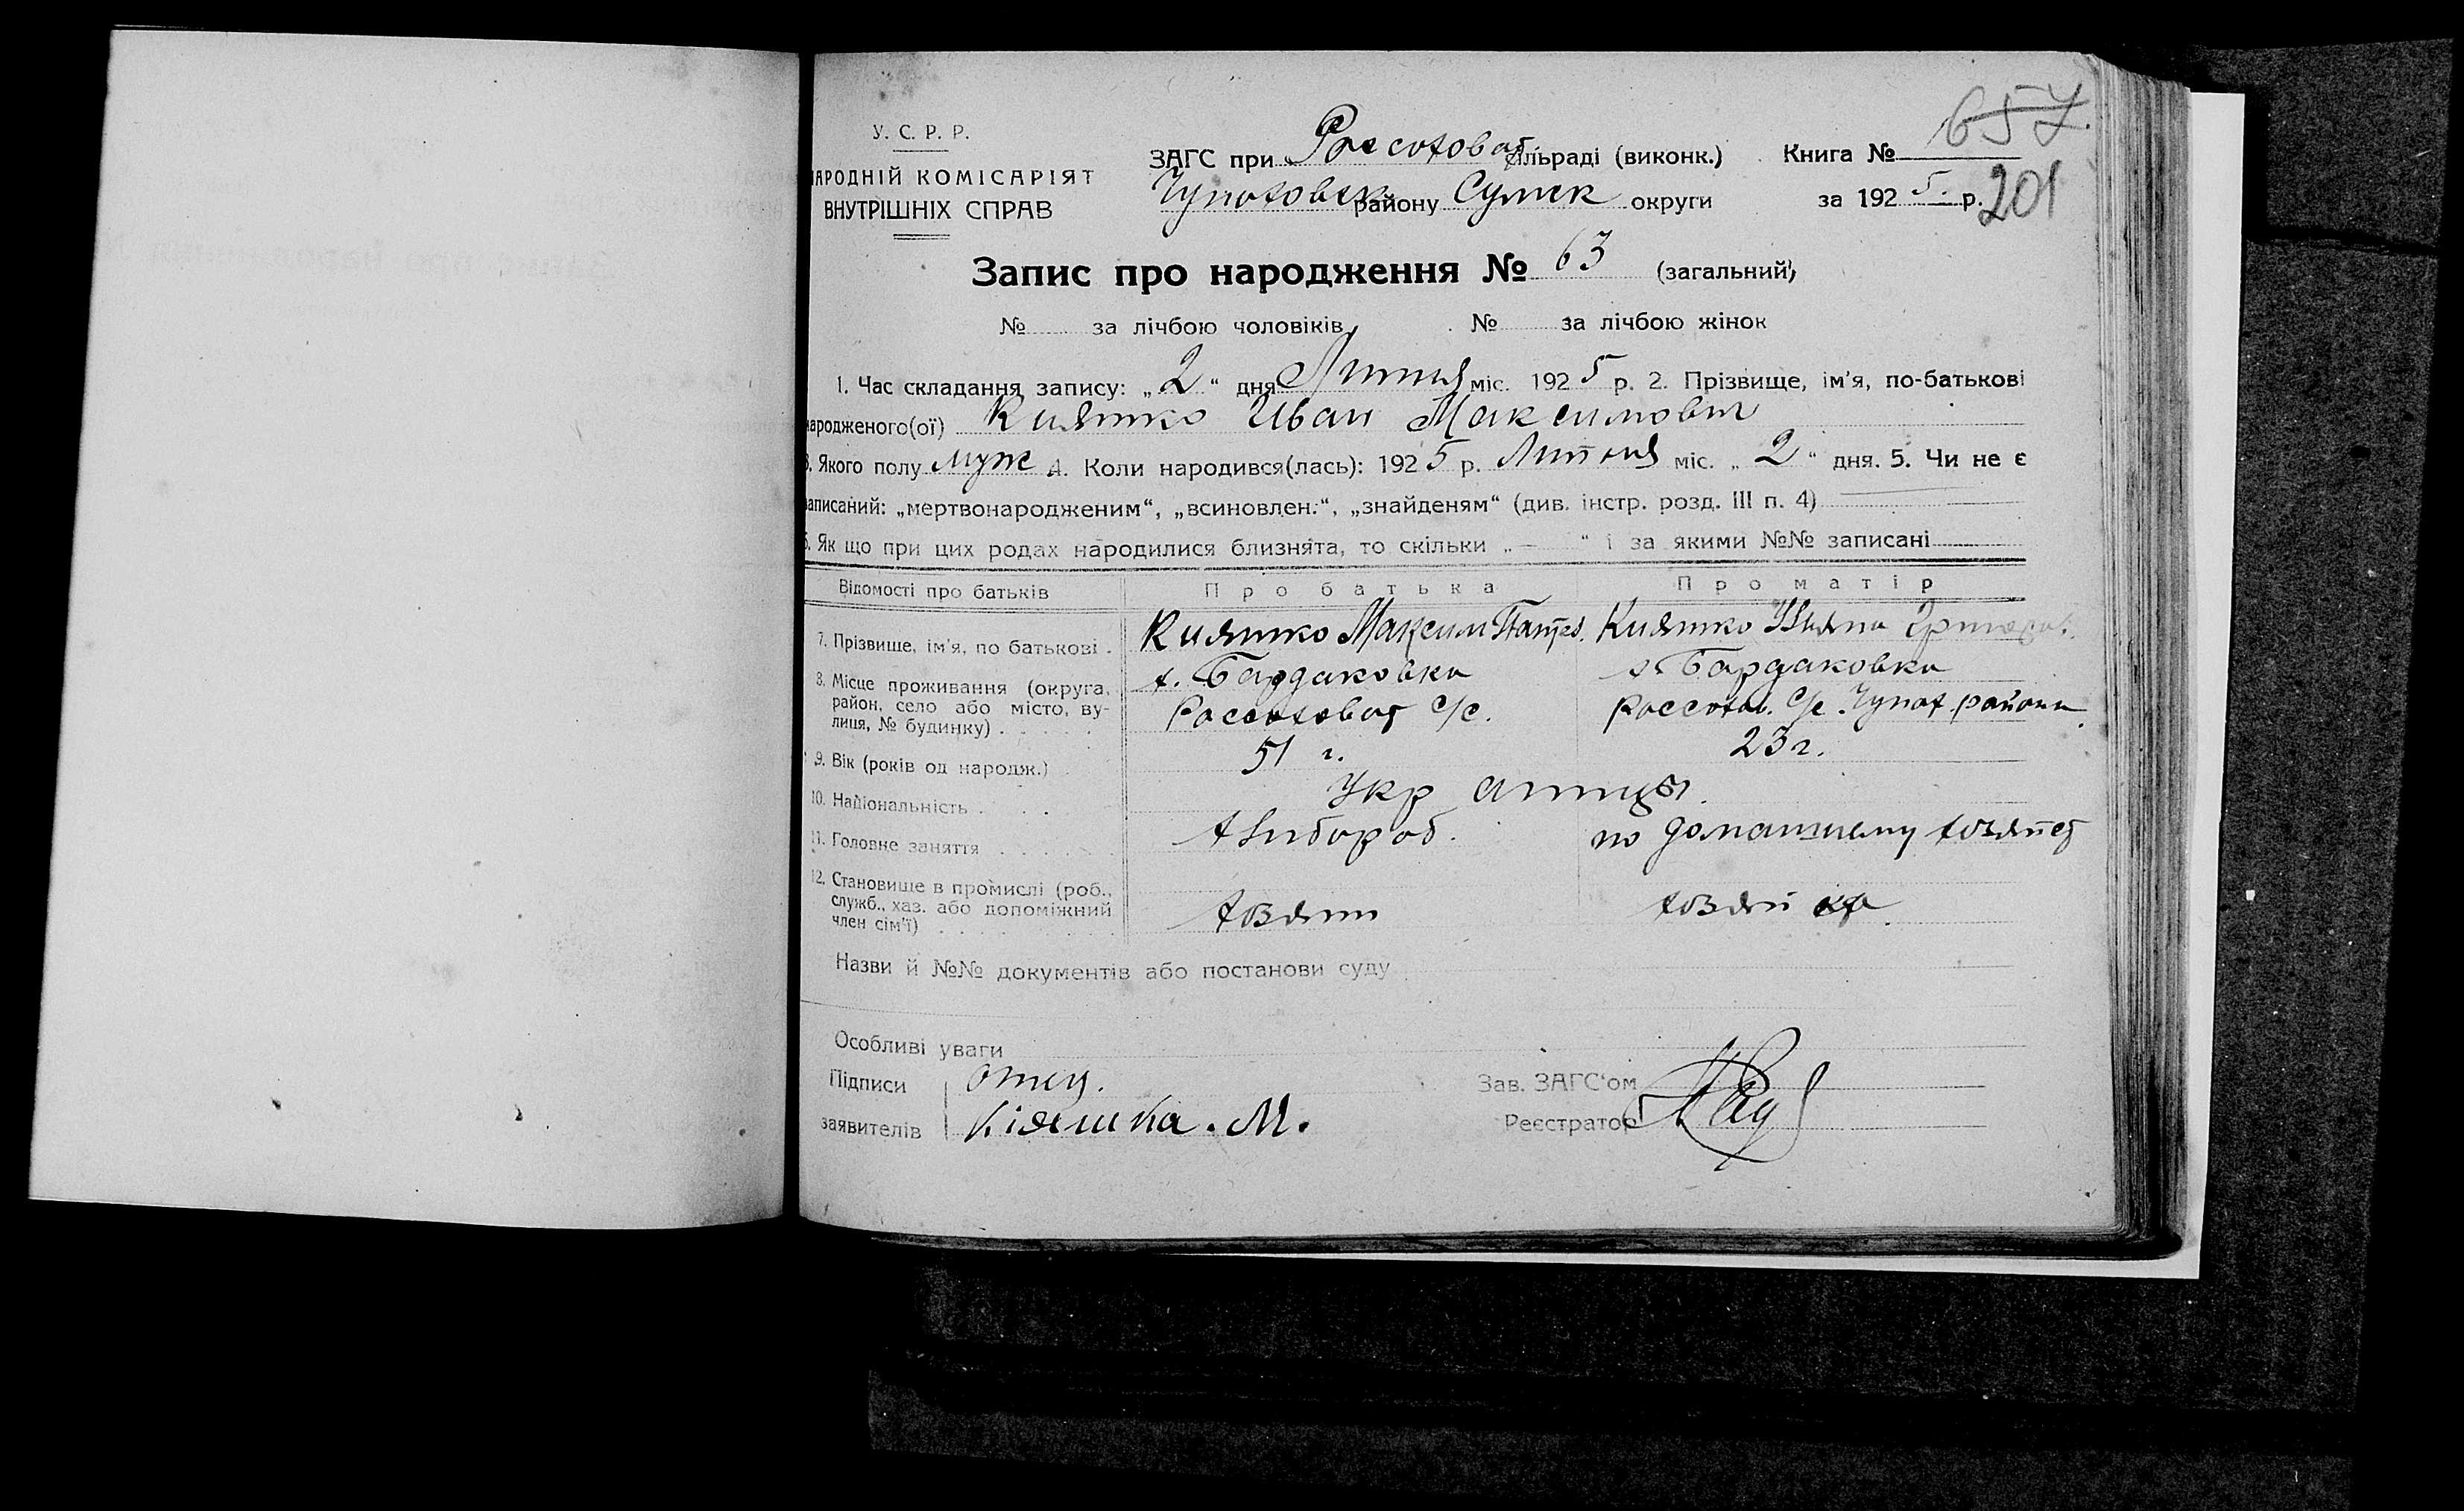 657
У. С. Р. Р.
ЗАГС при Россоховат. сільраді (виконк.) Книга №
АРОДНІЙ КОМІСАРІЯТ
Чупаховск району Сумск округи за 192 5. р. 201
ВНУТРІШНІХ СПРАВ
Запис про народження № 63 (загальний)
№ за лічбою чоловіків, № за лічбою жінок
1. Час складання запису: „ 2 “ дня Липня міс. 192 5 р. 2. Прізвище, ім'я, по-батькові
ародженого(ої) Кияшко Иван Максимович
3. Якого полу муж 4. Коли народився(лась): 192 5 р. Липня міс. „ 2 “ дня. 5. Чи не є
аписаний: „мертвонародженим“, „всиновлен.“, „знайденям“ (див. інстр. розд. III п. 4)
6. Як що при цих родах народилися близнята, то скільки „ — “ і за якими №№ записані
Відомості про батьків Про батька Про матір
7. Прізвище, ім'я, по батькові . Кияшко Максим Кияшко Ульяна Григор.
8. Місце проживання (округа, район, село або місто, вулиця, № будинку) . . . . . х. Бардаковка х. Бардаковка
Россоховат с/с. Россохов. с/с. Чупах. района
9. Вік (років од народж.) 51 г. 23 г.
10. Національність . . . . Укр
11. Головне заняття . . . . . . Хлибороб. по домашнему хозяйст
12. Становище в промислі (роб., служб., хаз. або допоміжний член сім'ї) . . . . . . . . . Хозяин хозяйка.
Назви й №№ документів або постанови суду
Особливі уваги
Підписи отец. Зав. ЗАГС'ом
заявителів Кіяшка. М. Реєстратор